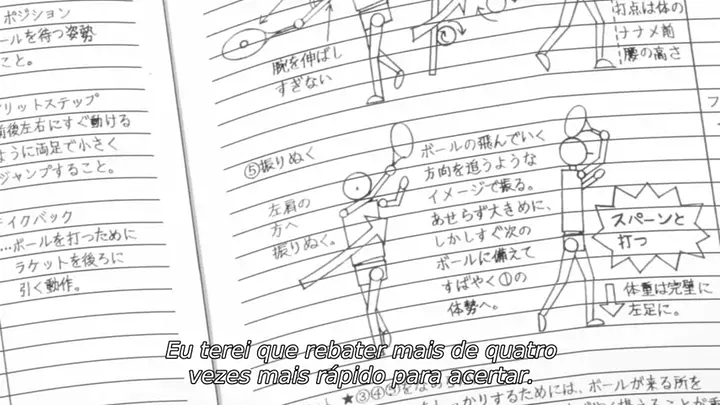 ポジション
ールを待つ姿勢
こと。
リットステップ
前後左右にすぐ動ける
ように両足で小さく
ジャンプすること。
イクバック
…ボールを打つために
ラケットを後ろに
引く動作。
腕を伸ばし
すぎない
打点は体の
ナナメ前
腰の高さ
⑤振りぬく
左肩の
方へ
振りぬく。
ボールの飛んでいく
方向を追うような
イメージで振る。
あせらず大きめに、
しかしすぐ次の
ボールに備えて
すばやく①の
体勢へ。
スパーンと
打つ
体重は完璧に
左足に。
★③④⑤をな
するためには、ボールが来る所を
Eu terei que rebater mais de quatro
vezes mais rápido para acertar.